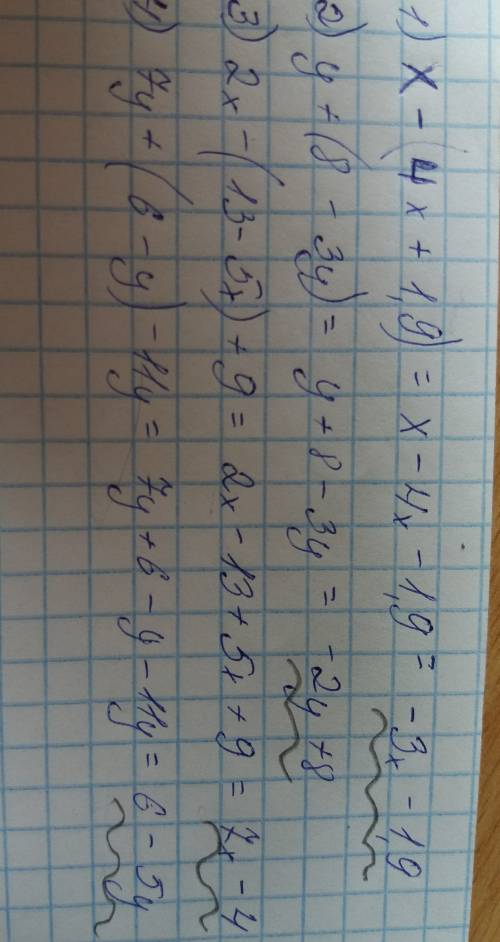 1) x - (4x + 1,9) = x - 4x - 1,9 = -3x - 1,9
2) y + (8 - 3y) = y + 8 - 3y = -2y + 8
3) 2x - (13 - 5x) + 9 = 2x - 13 + 5x + 9 = 7x - 4
4) 7y + (6 - y) - 11y = 7y + 6 - y - 11y = 6 - 5y